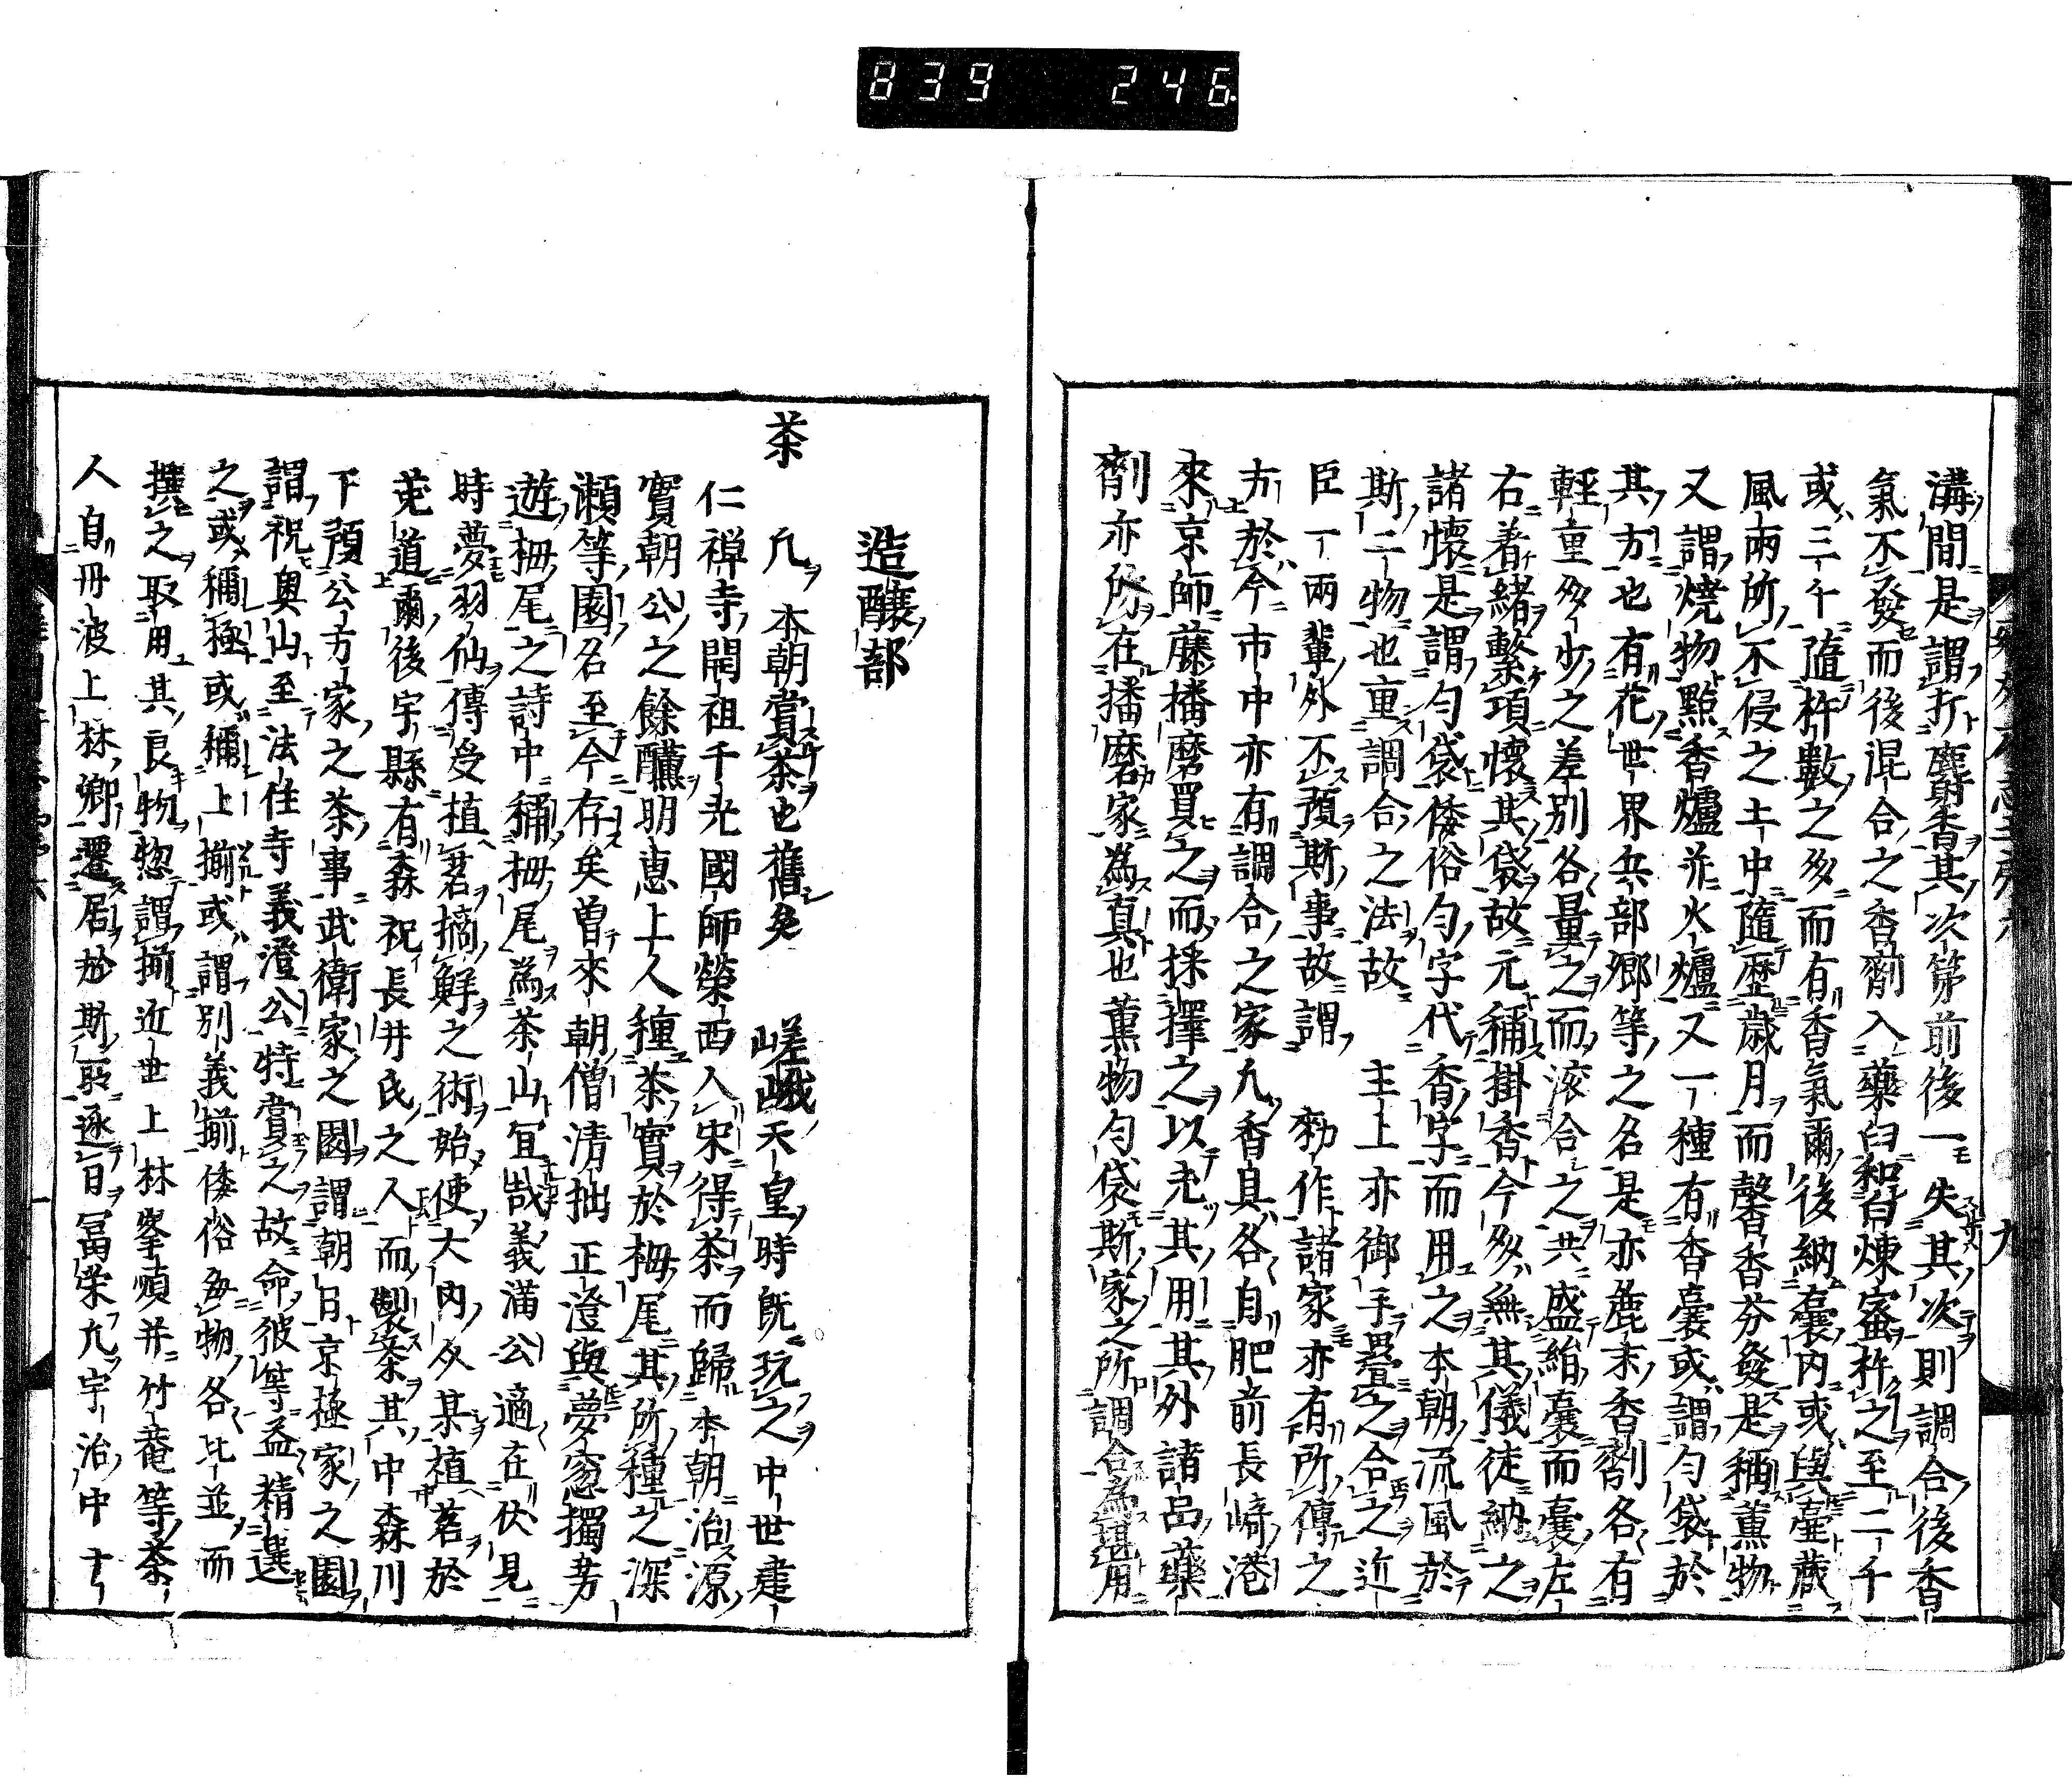 839 246
溝間是謂折麝香其次第前後一失其次則調合後香
氣不發而後混合之香劑入藥臼和白煉蜜杵之至二千
或三千隨杵數之多而有香氣爾後納囊內或與壷藏
風雨所不侵之土中隨歷歲月而馨香芬發是稱薰物
又謂燒物點香爐并火爐又一種有香囊或謂匂袋於
其方也有花世界兵部卿等之名是亦麁末香劑各有
輕重多少之差別各量之而滾合之共盛絹囊而囊左
右着緒繫項懷其袋故元稱掛香今多無其儀徒納之
諸懷是謂匂袋倭俗匂字代香字而用之本朝流風於
斯二物也重調合之法故 主上亦御手疊之合之近
臣一兩輩外不預斯事故謂 勅作諸家亦有所傳之
方於今市中亦有調合之家凡香具各自肥前長崎港
來京師藤播磨買之而採擇之以充其用其外諸品藥
劑亦所在播磨家為真也薰物匂袋斯家之所調合為堪用
九
造釀部
茶 凡本朝賞茶也舊矣 嵯峨天皇時既玩之中世建
仁禪寺開祖千光國師榮西入宋得茶而歸本朝治源
實朝公之餘醺明惠上人種茶實於栂尾其所種之深
瀨等園名至今存矣曾來朝僧清拙正澄與夢窓獨芳
遊栂尾之詩中稱栂尾為茶山宜哉義滿公適在伏見
時夢羽仙傳受植茗摘鮮之術始使大內某植茗於
菟道爾後宇縣有森祝長井氏之人而製茶其中森川
下預公方家之茶事武衛家之園謂朝日京極家之園
謂祝奧山至法住寺義澄公特賞之故命彼等益精選
之或稱極或稱上揃或謂別義揃倭俗每物各比並而
撰之取用其良物惣謂揃近世上林峯順并竹菴等茶
人自丹波上林鄉遷居於斯所逐日冨榮凡宇治中十